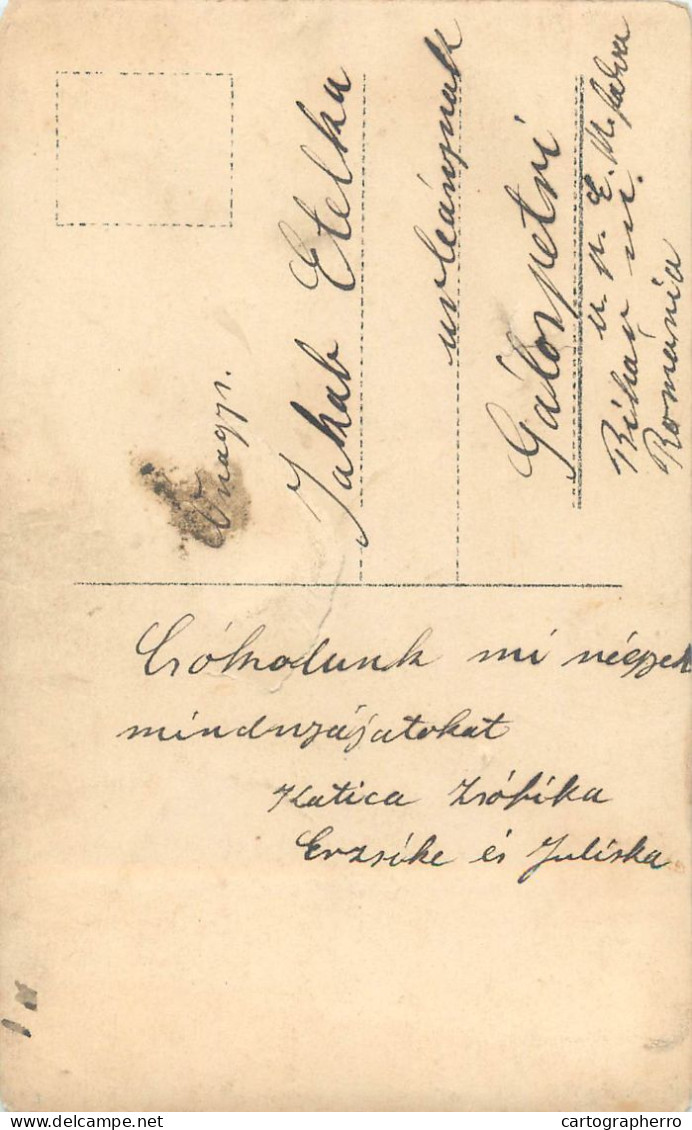 Őnagys.
Jakab Etelka
urleánynak
Gálospetri
u. p. É. M. falva
Bihar m.
Románia
Csókodunk mi négyen
mindnyájatokat
Katica Zsófika
Erzsike és Juliska
delcampe.net
cartographerro